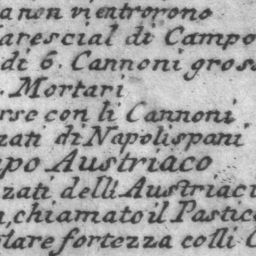 a non vi entrorono
arescial di Campo
di 6. Cannoni gross
. Mortari
rse con li Cannoni
zati di Napolispani
po Austriaco
zati delli Austriaci
, chiamato il Pastic
lare fortezza colli C